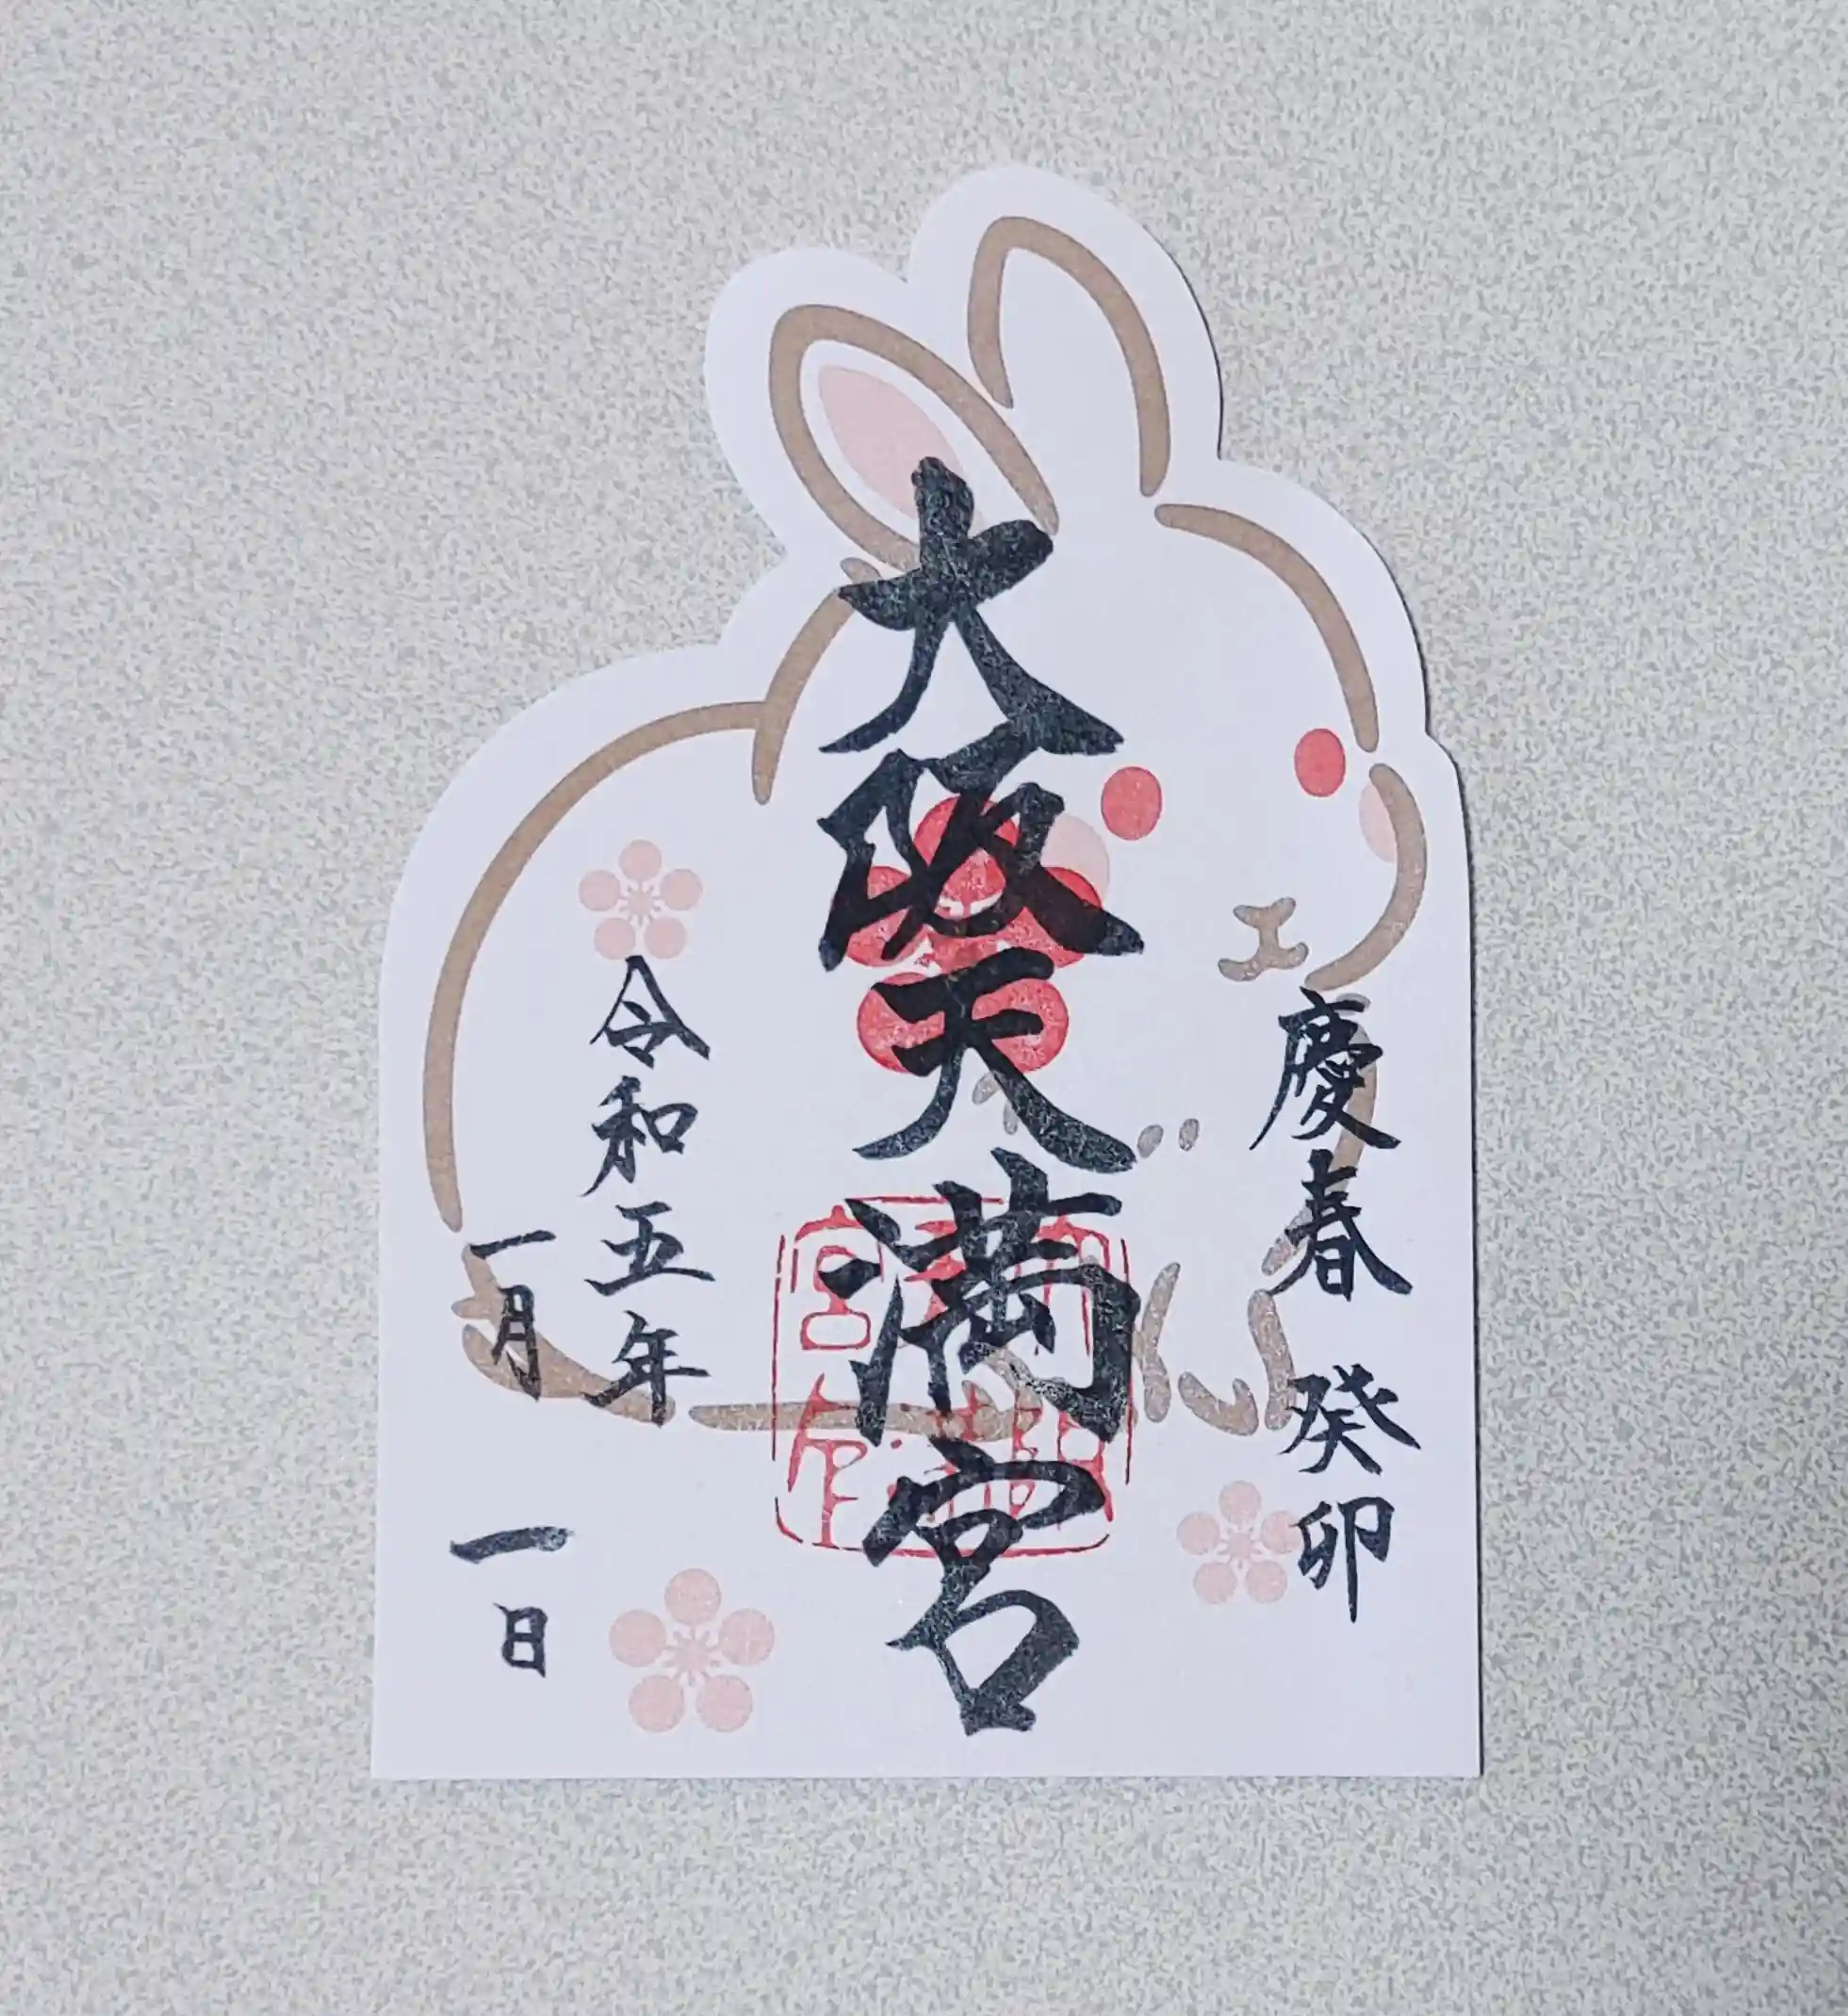 慶春 癸卯
大阪天満宮
令和五年
一月 一日